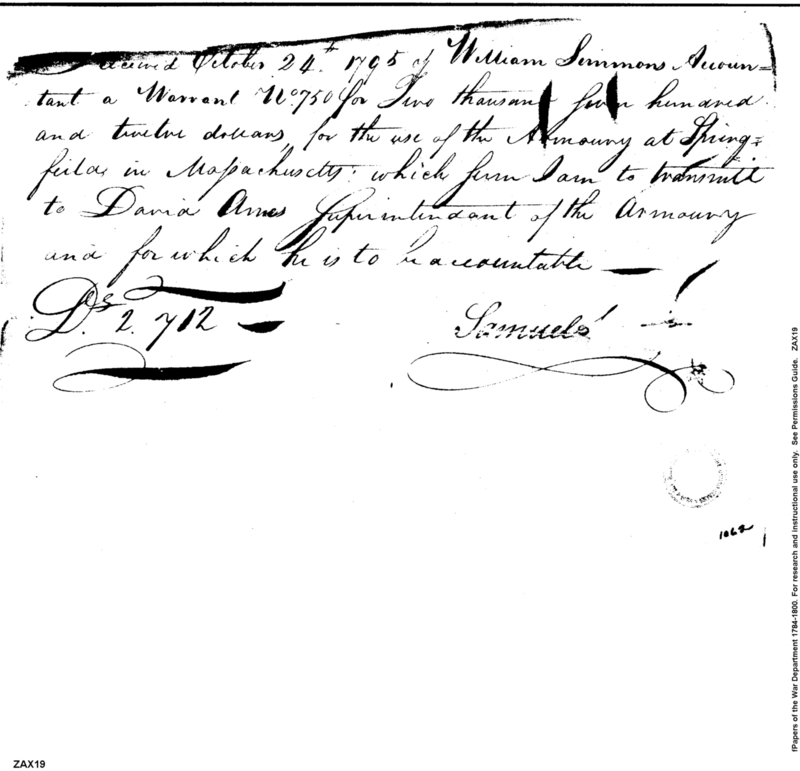 Received October 24th. 1795 of William Simmons Accoun=
tant a Warrant No 750 for Two thousand seven hundred
and twelve dollars, for the use of the Armoury at Spring=
field in Massachusetts: which sum I am to transmit
to David Ames Superintendant of the Armoury
and for which he is to be accountable
Ds. 2.712
Samuel
1062
fPapers of the War Department 1784-1800. For research and instructional use only. See Permissions Guide. ZAX19
ZAX19